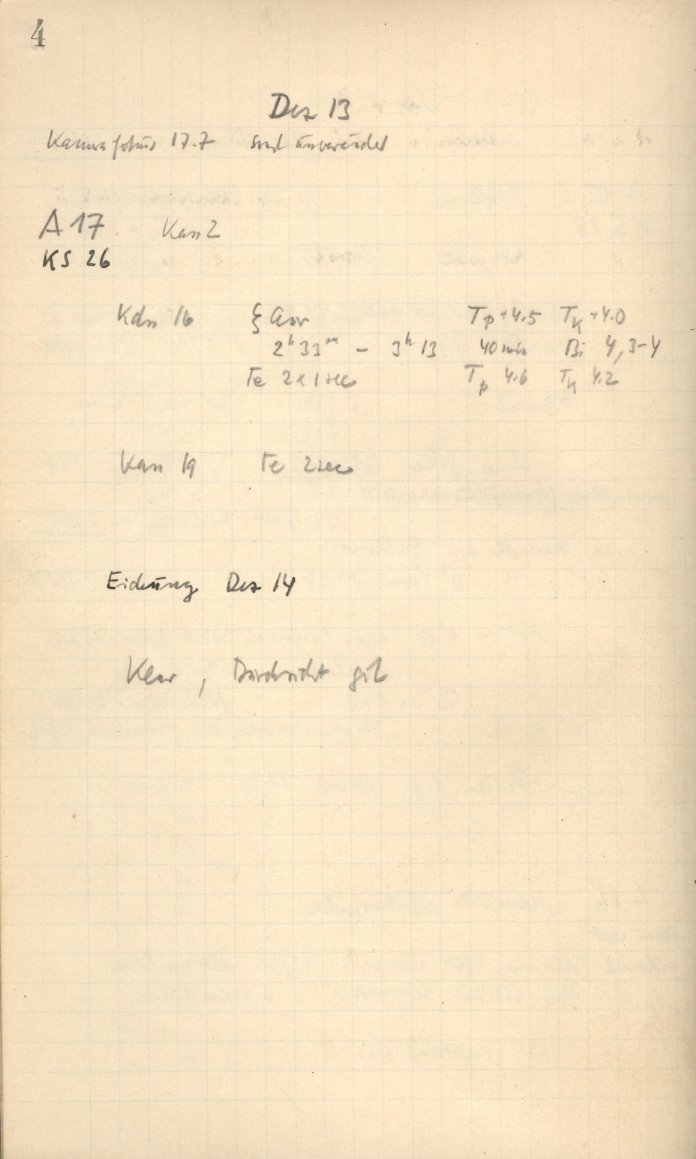 4
Dez 13
Kamerafokus 17.7 sonst unverändert
A 17 Kass 2
KS 26
Kass 16 ξ Aur Tp +4.5 TK +4.0
2h 33m – 3h 13 40 min Bi 4, 3–4
Fe 2 x 1 sec Tp 4.6 TK 4.2
Kass 19 Fe 2 sec
Eichung Dez 14
Klar, Durchsicht gut